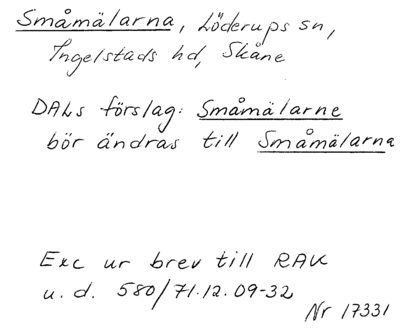 Småmälarna, Löderups sn,
Ingelstads hd, Skåne
DALs förslag: Småmälarne
bör ändras till Småmälarna
Exc ur brev till RAK
u. d. 580/71.12.09-32
Nr 17331